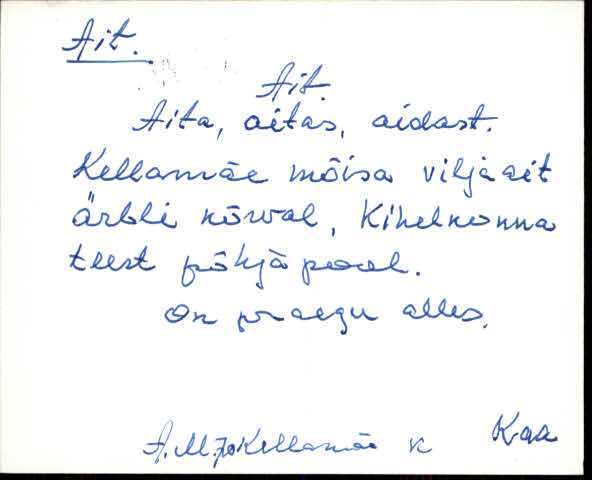 Ait.
Ait.
Aita, aitas, aidast.
Kellamäe mõisa viljaait
ärbli kõrval, Kihelkonna
teest põhjapool.
On praegu alles.
Kaa
A.M. Kellamäe k